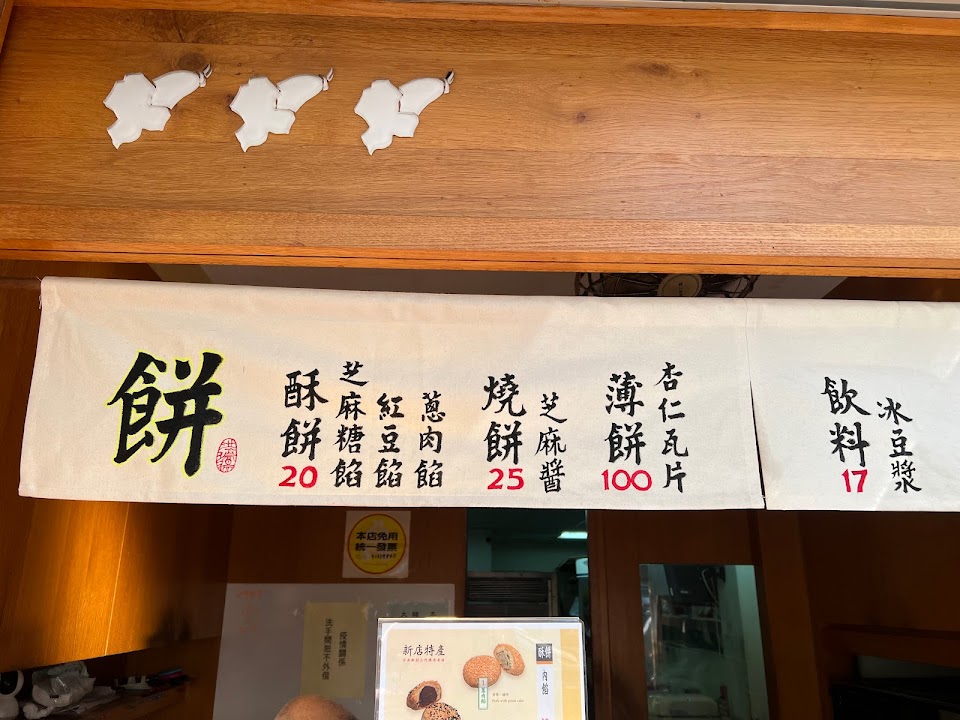 餅
酥餅
20
芝麻糖餡
紅豆餡
蔥肉餡
燒餅
25
芝麻醬
薄餅
100
杏仁瓦片
飲料
17
冰豆漿
本店免用
統一發票
疫情關係
洗手間恕不外借
新店特產
酥餅
肉餡